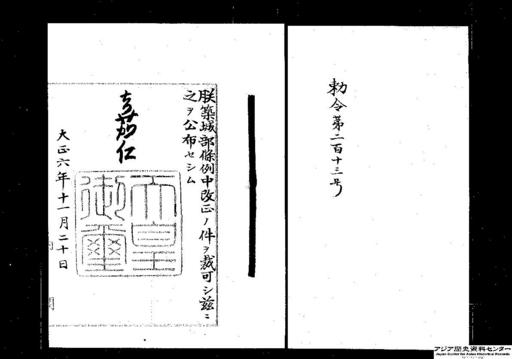 勅令第二百十三号
朕築城部條例中改正ノ件ヲ裁可シ茲ニ
之ヲ公布セシム
嘉仁
天皇御璽
大正六年十一月二十日
アジア歴史資料センター
Japan Center for Asian Historical Records